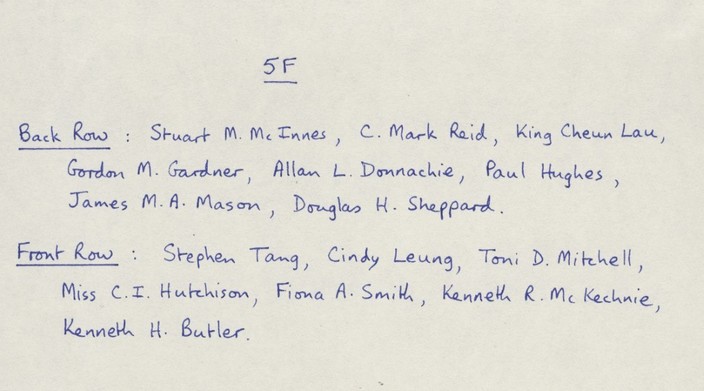 5F
Back Row : Stuart M. McInnes, C. Mark Reid, King Cheun Lau,
Gordon M. Gardner, Allan L. Donnachie, Paul Hughes,
James M.A. Mason, Douglas H. Sheppard.
Front Row : Stephen Tang, Cindy Leung, Toni D. Mitchell,
Miss C.I. Hutchison, Fiona A. Smith, Kenneth R. McKechnie,
Kenneth H. Butler.